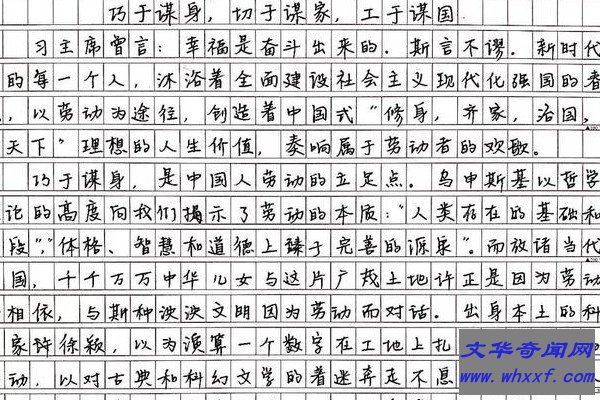 巧于谋身，切于谋家，工于谋国
习主席曾言：幸福是奋斗出来的．斯言不谬．新时代
的每一个人，沐浴着全面建设社会主义现代化强国的春
，以劳动为途径，创造着中国式“修身，齐家，治国，
天下”理想的人生价值，奏响属于劳动者的欢歌。
巧于谋身，是中国人劳动的立足点．乌申斯基以哲学
论的高度向我们揭示了劳动的本质：“人类存在的基础和
段”，“体格、智慧和道德上臻于完善的源泉”。而放诸当代
国，千千万万中华儿女与这片广茂土地许正是因为劳动
相依，与斯种泱泱文明因为劳动而对话．出身本土的科
家许徐颖，以为演算一个数字在工地上扎
动，以对古典和科幻文学的着迷奔走不息
▲500
文华奇闻网
www.whxxf.com